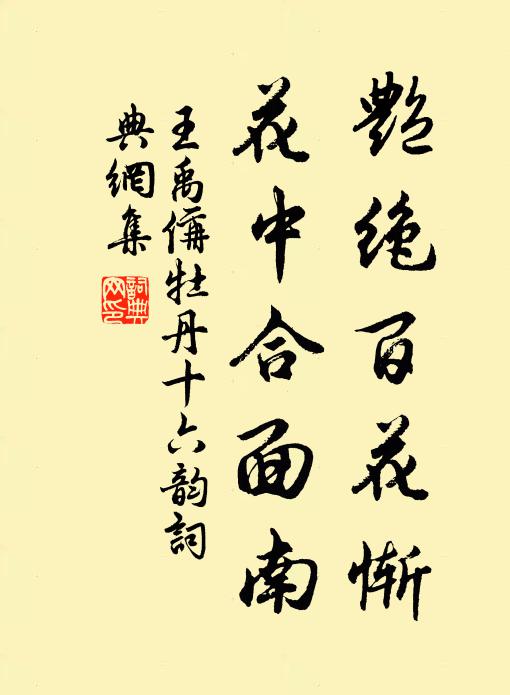 艷絶百花慚
花中合面南
王禹偁牡丹十六韵詞
典網集
詞典网印